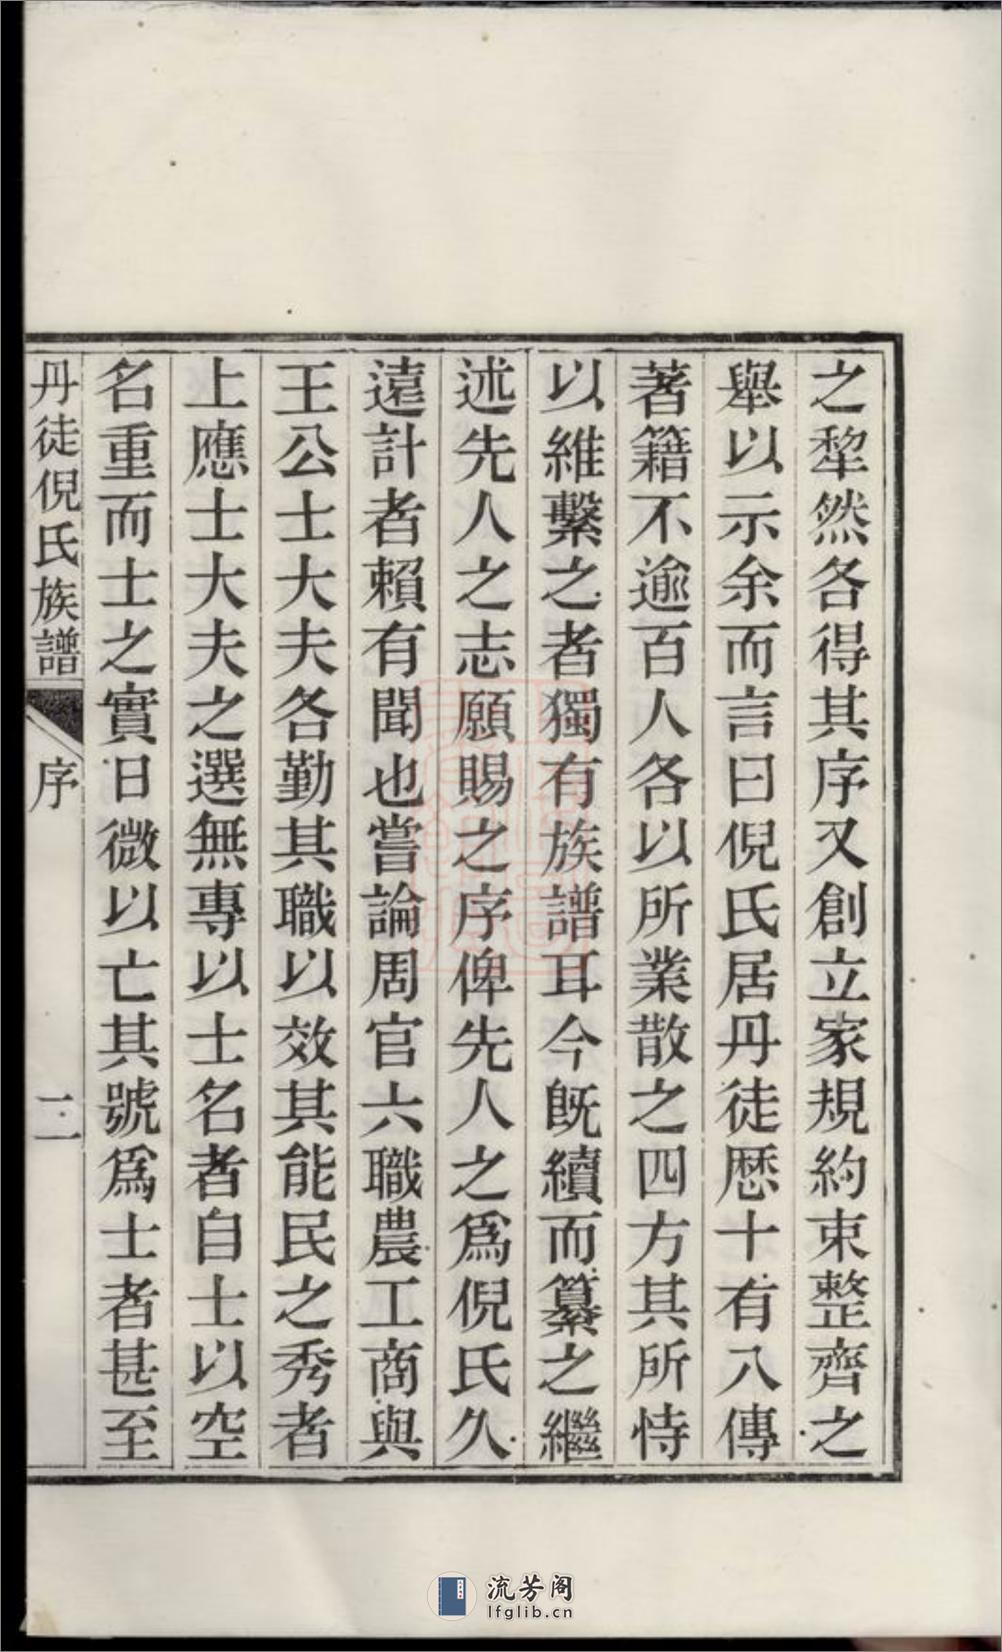 之犂然各得其序又創立家規約束整齊之
舉以示余而言曰倪氏居丹徒歷十有八傳
著籍不逾百人各以所業散之四方其所恃
以維繫之者獨有族譜耳今旣續而纂之繼
述先人之志願賜之序俾先人之爲倪氏久
遠計者賴有聞也嘗論周官六職農工商與
王公士大夫各勤其職以效其能民之秀者
上應士大夫之選無專以士名者自士以空
名重而士之實日微以亡其號爲士者甚至
丹徒倪氏族譜 序 二
流芳阁
lfglib.cn